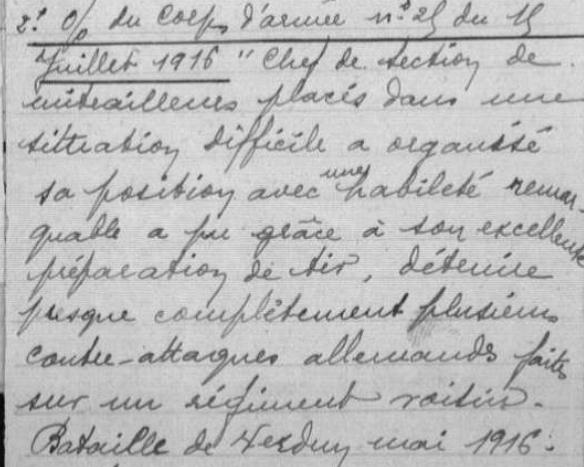 2º O/ du Corps d'armée nº 25 du 15
Juillet 1916 " Chef de section de
mitrailleurs placés dans une
sittuation difficile a organisé
sa position avec une habileté remar-
quable a pu grâce à son excellente
préparation de tir, détruire
presque complètement plusieurs
contre-attaques allemands faites
sur un régiment voisin.
Bataille de Verdun mai 1916.